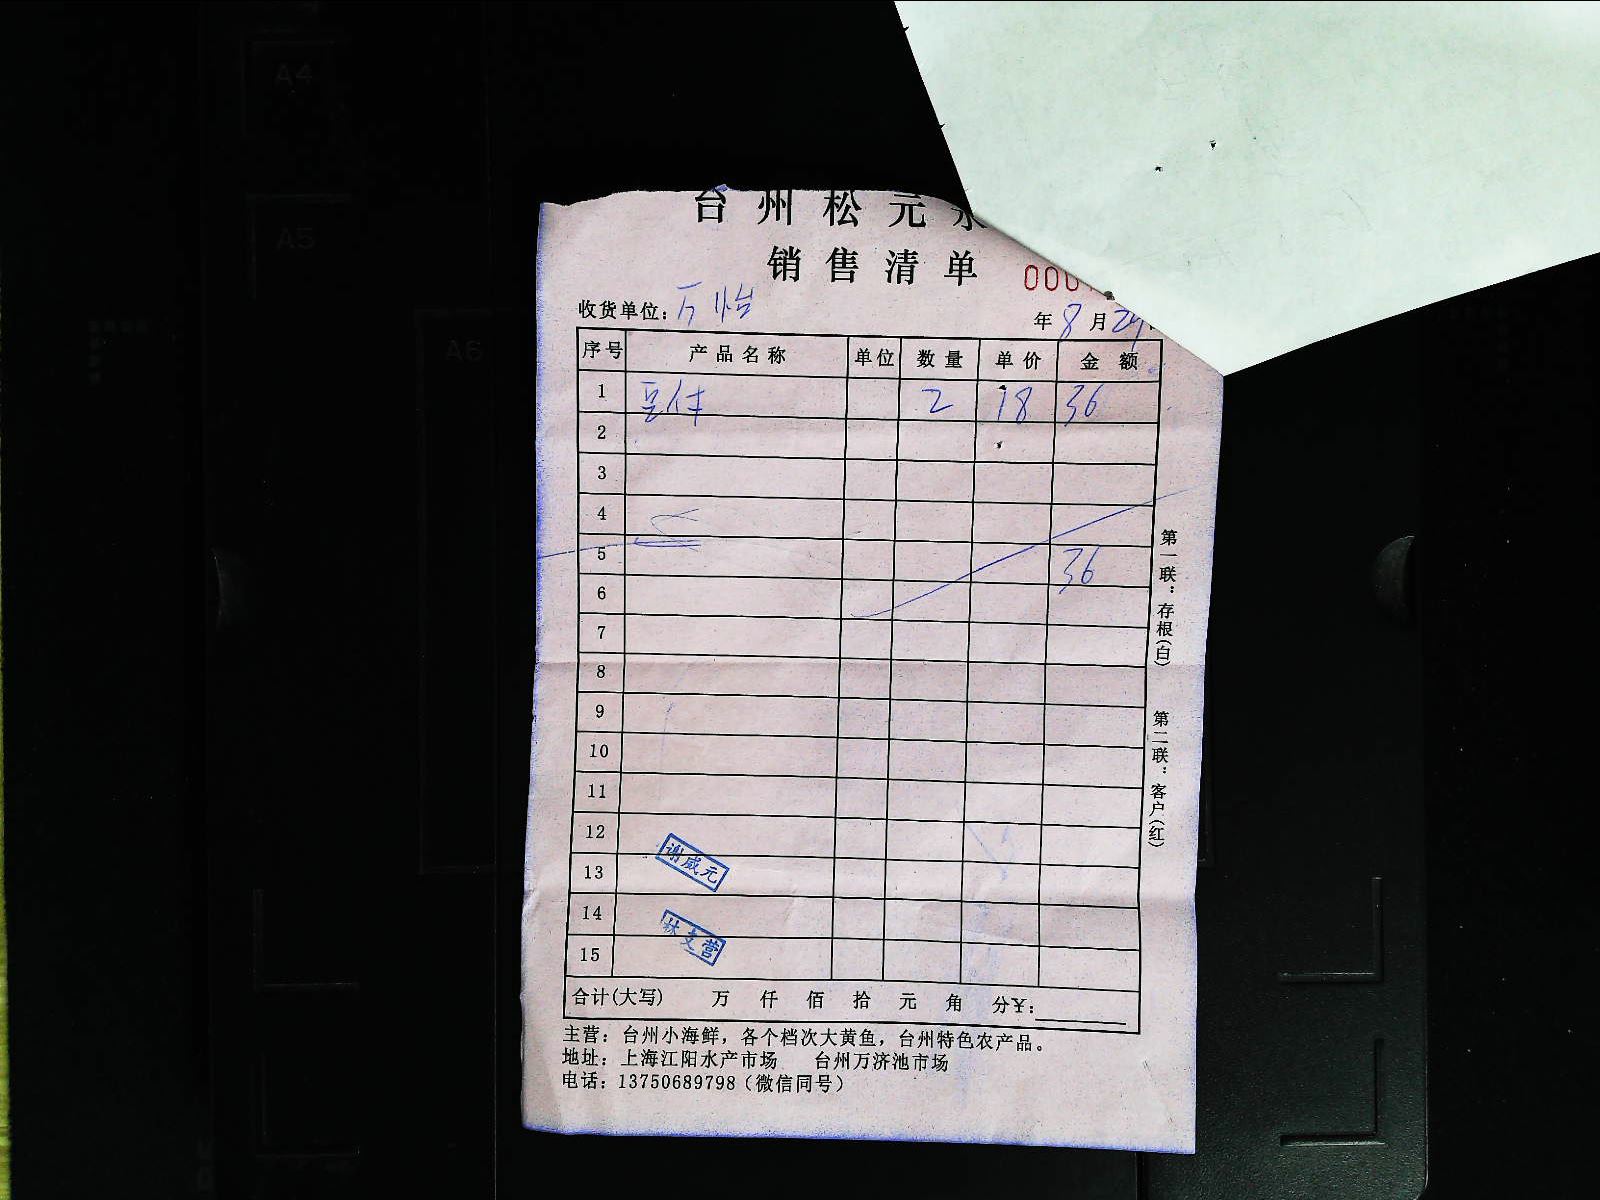 A4
A5
A6
台州松元
销售清单
000
收货单位：万怡 年8月29
序号 产品名称 单位 数量 单价 金额
1 豆付 2 18 36
2
3
4
5 36
6
7
8
9
10
11
12
13
14
15
谢威元
林支营
合计(大写) 万 仟 佰 拾 元 角 分¥：
主营：台州小海鲜，各个档次大黄鱼，台州特色农产品。
地址：上海江阳水产市场 台州万济池市场
电话：13750689798（微信同号）
第一联：存根(白)
第二联：客户(红)